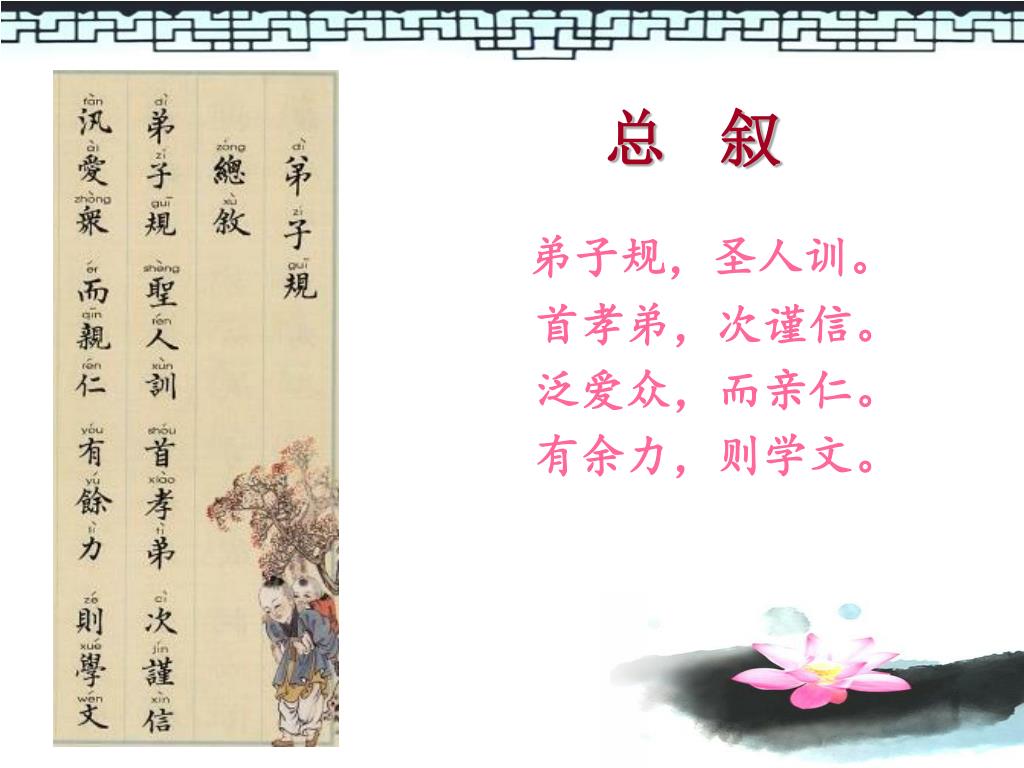 dì zǐ guī
弟子規
zǒng xù
總敘
dì zǐ guī shèng rén xùn shǒu xiào tì cì jǐn xìn
弟子規 聖人訓 首孝弟 次謹信
fàn ài zhòng ér qīn rén yǒu yú lì zé xué wén
汎愛眾 而親仁 有餘力 則學文
总 叙
弟子规，圣人训。
首孝弟，次谨信。
泛爱众，而亲仁。
有余力，则学文。